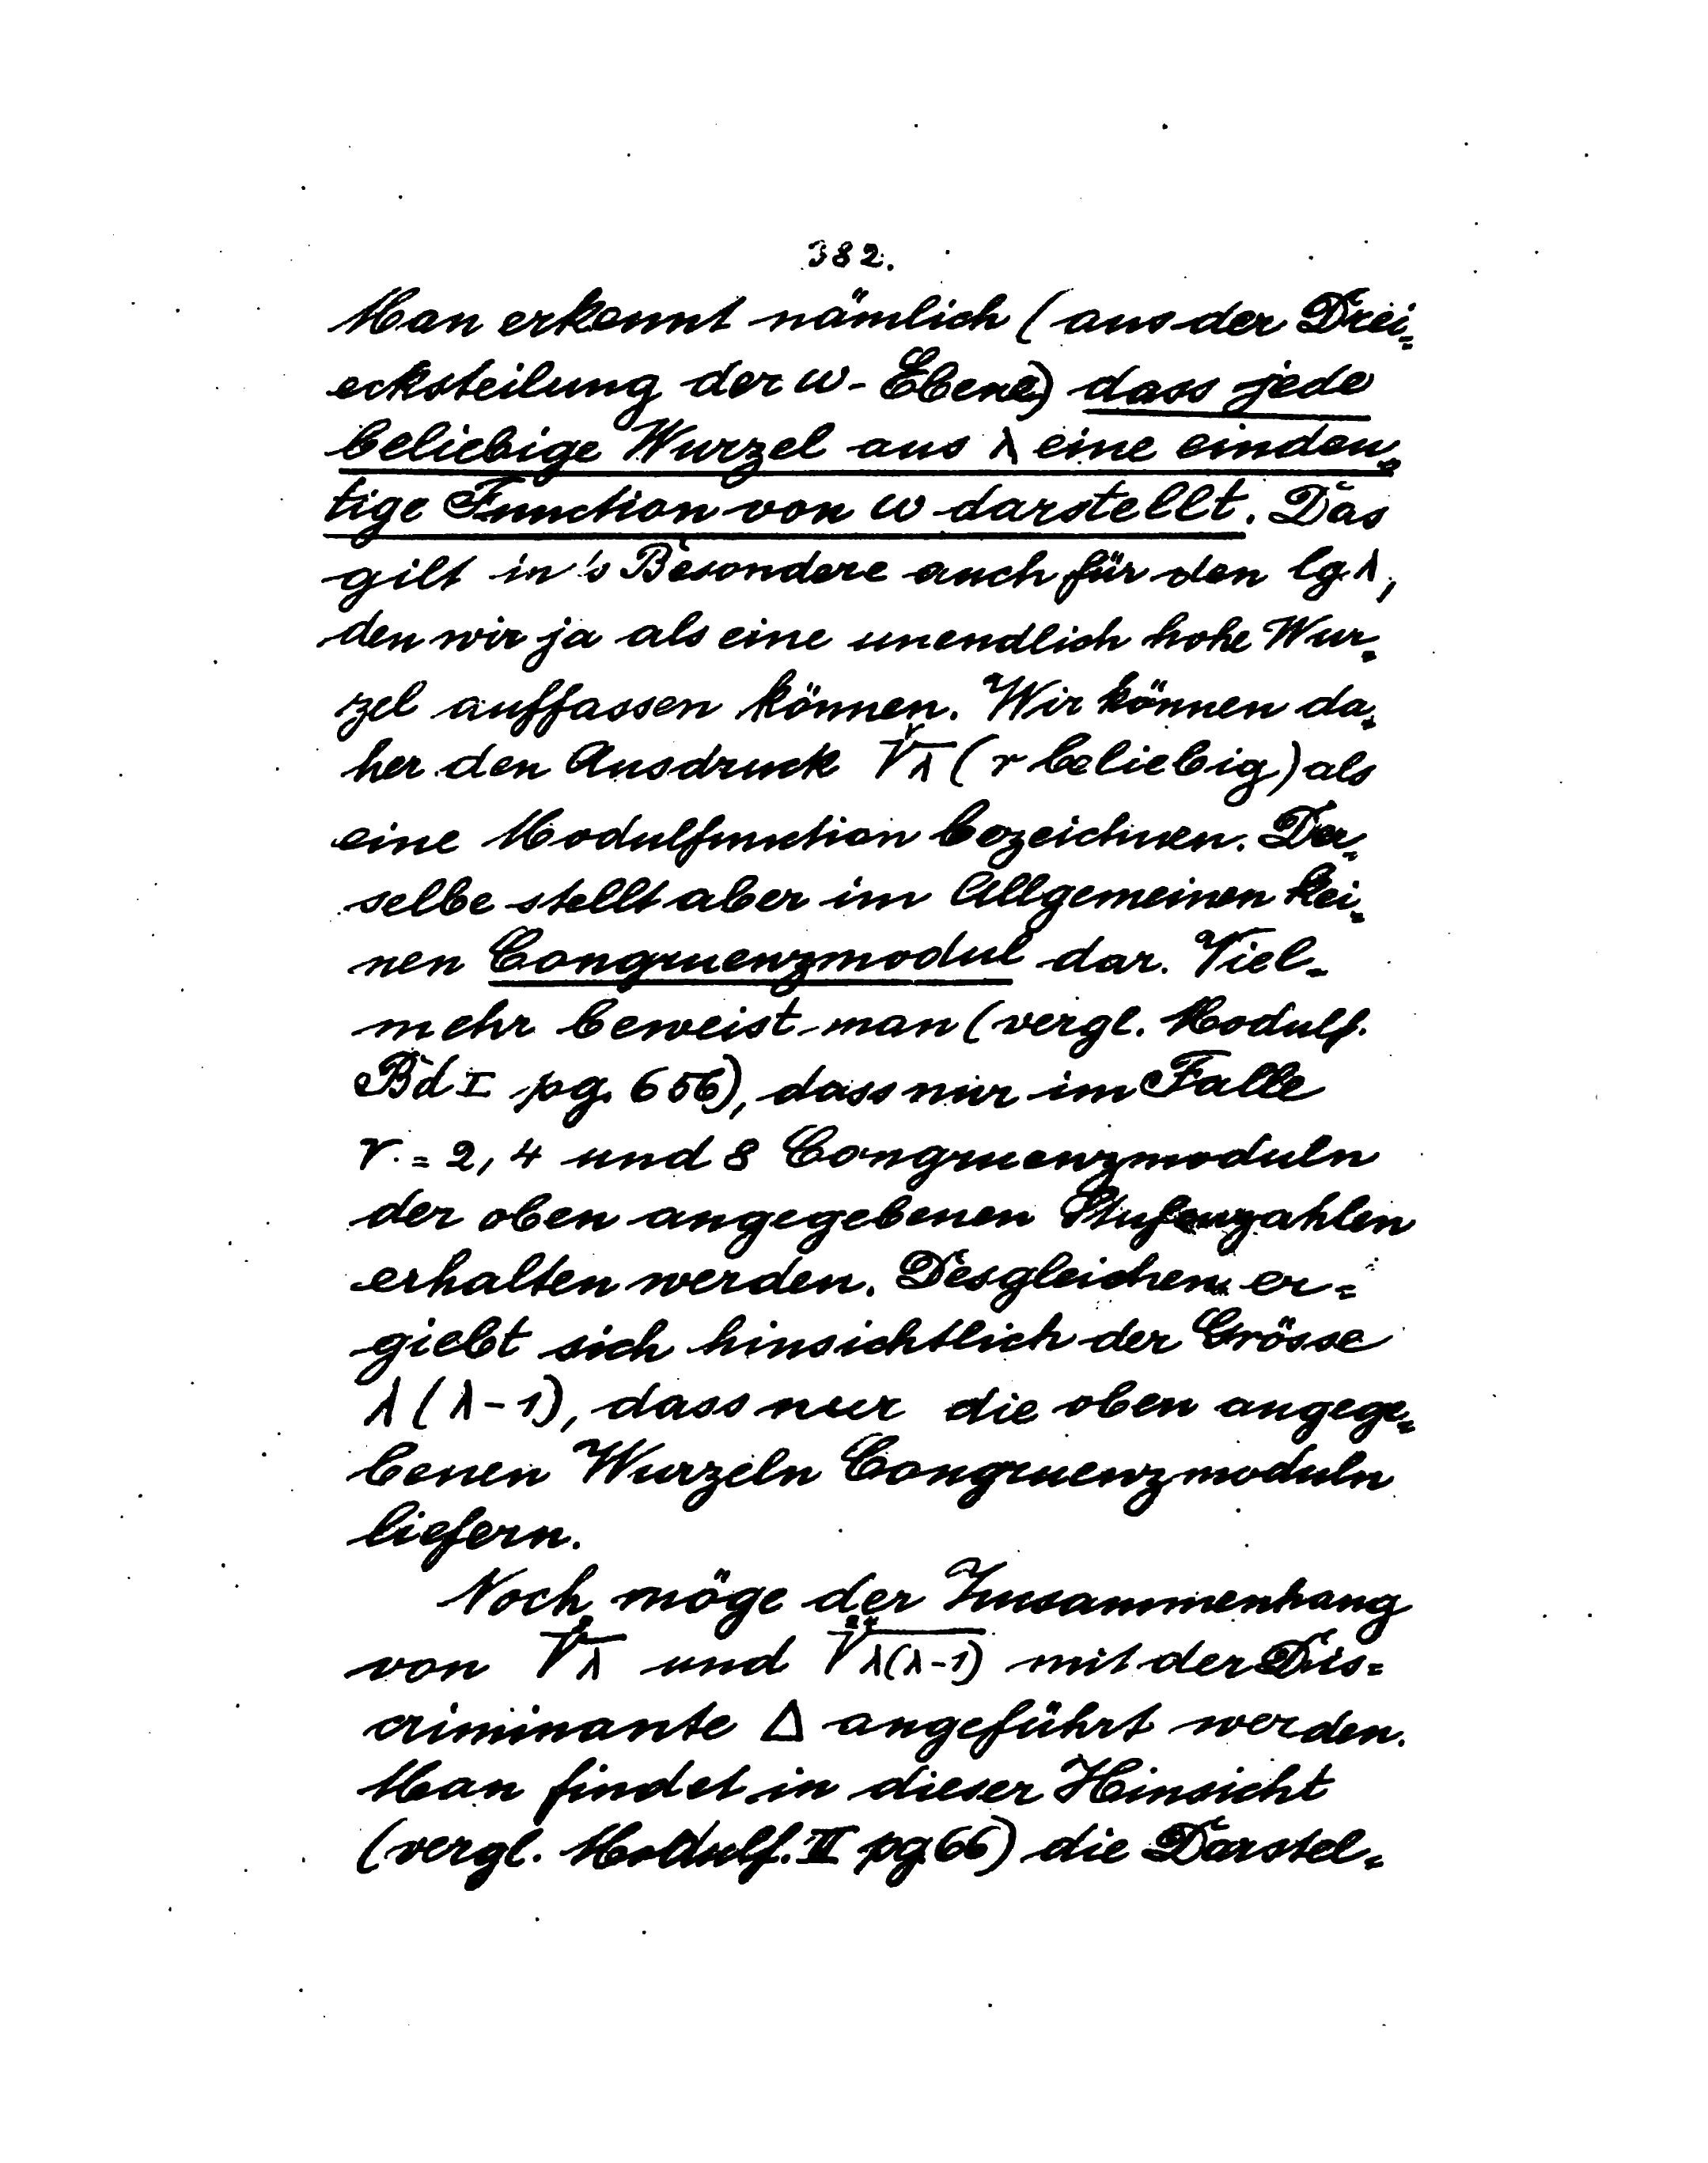 382.
Man erkennt nämlich (aus der Drei=
ecksteilung der ω-Ebene) dass jede
beliebige Wurzel aus λ eine eindeu=
tige Function von ω darstellt. Das
gilt in's Besondere auch für den lg λ,
den wir ja als eine unendlich hohe Wur=
zel auffassen können. Wir können da=
her den Ausdruck \sqrt[r]{λ} (r beliebig) als
eine Modulfunction bezeichnen. Der=
selbe stellt aber im Allgemeinen kei=
nen Congruenzmodul dar. Viel=
mehr beweist man (vergl. Modulf.
Bd I pg. 656), dass nur im Falle
r = 2, 4 und 8 Congruenzmoduln
der oben angegebenen Stufenzahlen
erhalten werden. Desgleichen er=
giebt sich hinsichtlich der Grösse
λ(λ-1), dass nur die oben angege=
benen Wurzeln Congruenzmoduln
liefern.
Noch möge der Zusammenhang
von \sqrt[8]{λ} und \sqrt[24]{λ(λ-1)} mit der Dis=
criminante Δ angeführt werden.
Man findet in dieser Hinsicht
(vergl. Modulf. II pg 66) die Darstel=